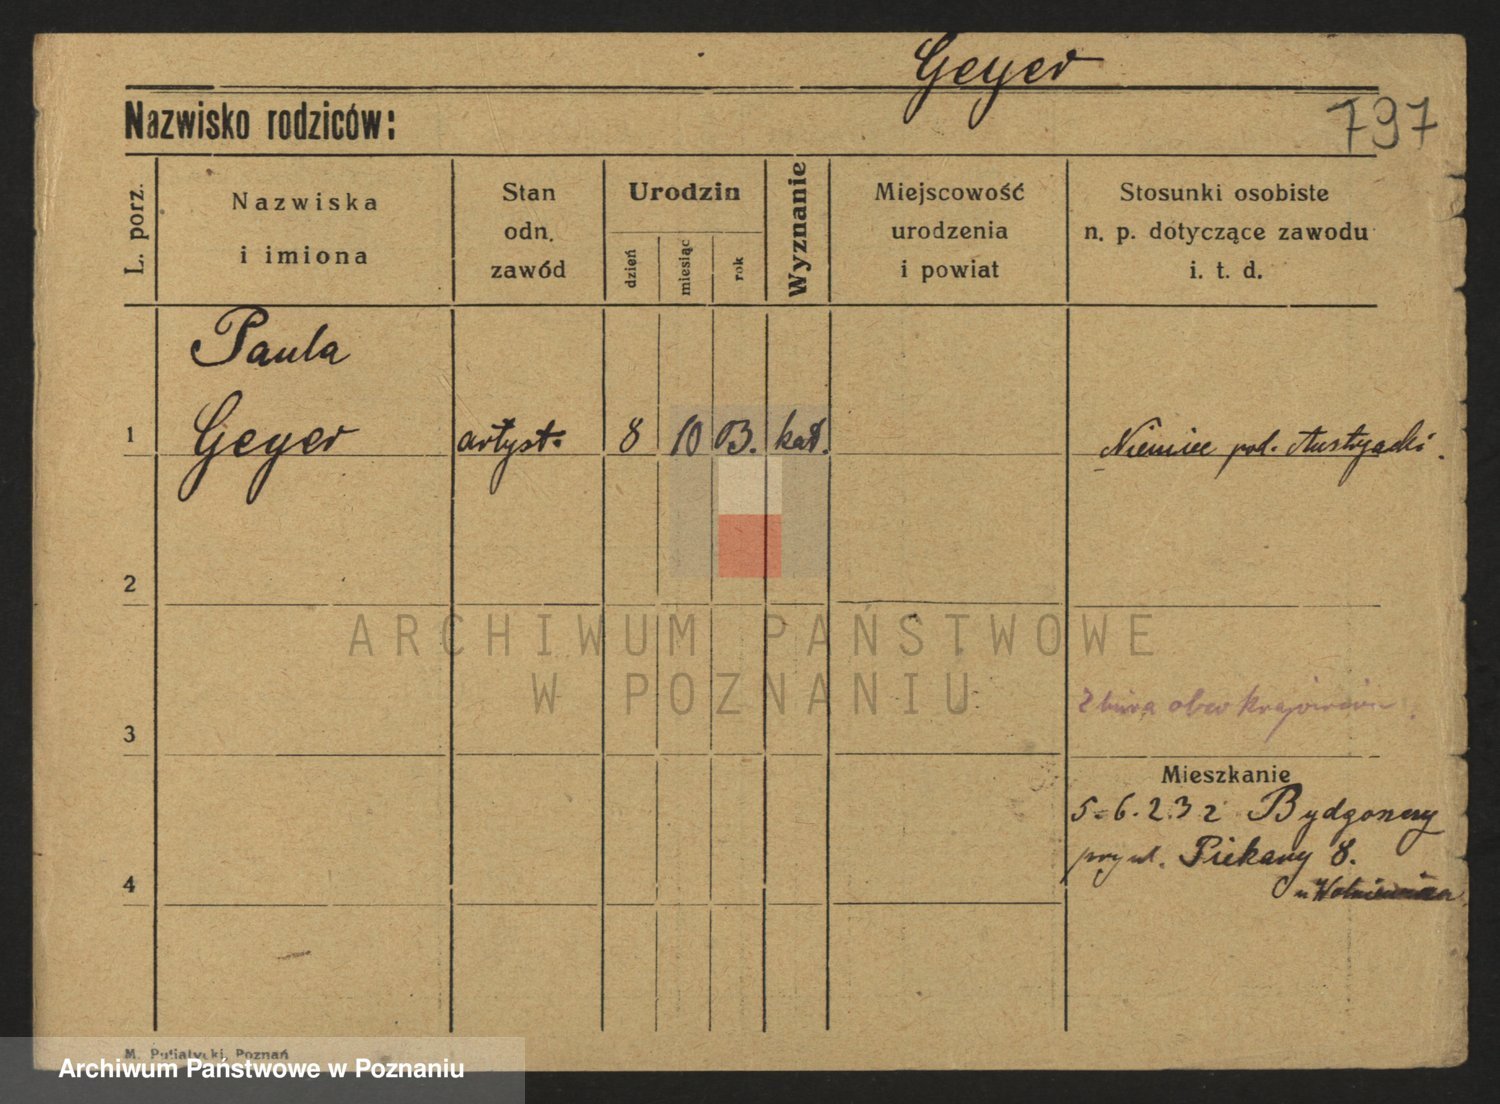 Geyer
797
Nazwisko rodziców:
L. porz.
Nazwiska
i imiona
Stan
odn.
zawód
Urodzin
dzień
miesiąc
rok
Wyznanie
Miejscowość
urodzenia
i powiat
Stosunki osobiste
n. p. dotyczące zawodu
i. t. d.
Paula
1 Geyer artyst. 8 10 03. kat. Niemiec pod. Austryacki.
2
ARCHIWUM PAŃSTWOWE
W POZNANIU
3
Mieszkanie
5.6.23 z Bydgoszczy
przy ul. Piekary 8.
4
M. Putiatycki, Poznań
Archiwum Państwowe w Poznaniu